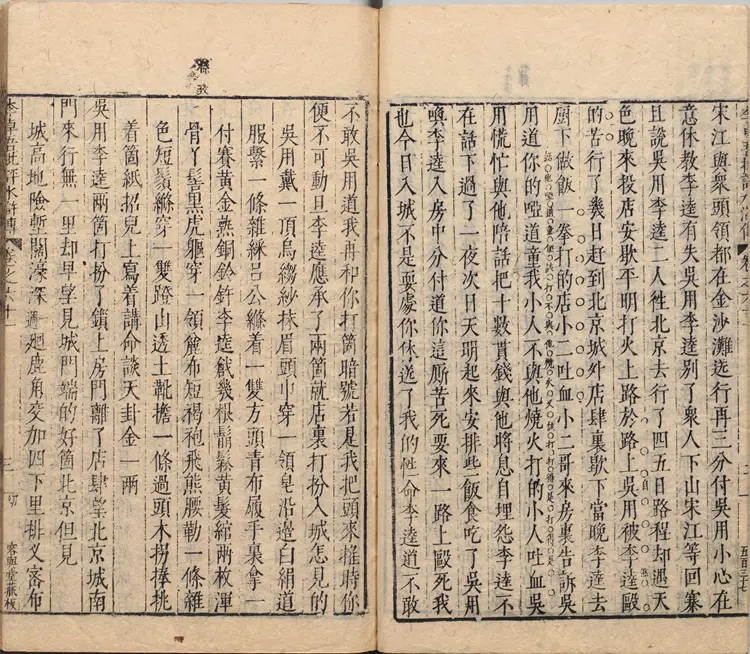 宋江與衆頭領都在金沙灘送行再三分付吳用小心在
意休教李逵有失吳用李逵別了衆人下山宋江等回寨
且說吳用李逵二人徃北京去行了四五日路程却遇天
色晚來投店安歇平明打火上路於路上吳用被李逵毆
的苦行了幾日赶到北京城外店肆裏歇下當晚李逵去
厨下做飯一拳打的店小二吐血小二哥來房裏告訴吳
用道你的啞道童我小人不與他燒火打的小人吐血吳
用慌忙與他陪話把十數貫錢與他將息自埋怨李逵不
在話下過了一夜次日天明起來安排些飯食吃了吳用
喚李逵入房中分付道你這厮苦死要來一路上毆死我
也今日入城不是耍處你休送了我的性命李逵道不敢
不敢吳用道我再和你打箇暗號若是我把頭來搖時你
便不可動旦李逵應承了兩箇就店裏打扮入城怎見的
吳用戴一頂烏縐紗抹眉頭巾穿一領皂沿邊白絹道
服繫一條雜綵呂公絛着一雙方頭青布履手裏拿一
付賽黃金熟銅鈴鈝李逵戧幾根鬅鬆黃髮綰兩枚渾
骨丫髻黑虎軀穿一領麄布短褐袍飛熊腰勒一條雜
色短鬚絛穿一雙蹬山透土靴擔一條過頭木拐捧挑
着箇紙招兒上寫着講命談天卦金一兩
吳用李逵兩箇打扮了鎖上房門離了店肆望北京城南
門來行無一里却早望見城門端的好箇北京但見
城高地險塹闊濠深一週廻鹿角交加四下里排叉密布
李卓吾批評水滸傳 卷之六十一
三
容與堂藏板